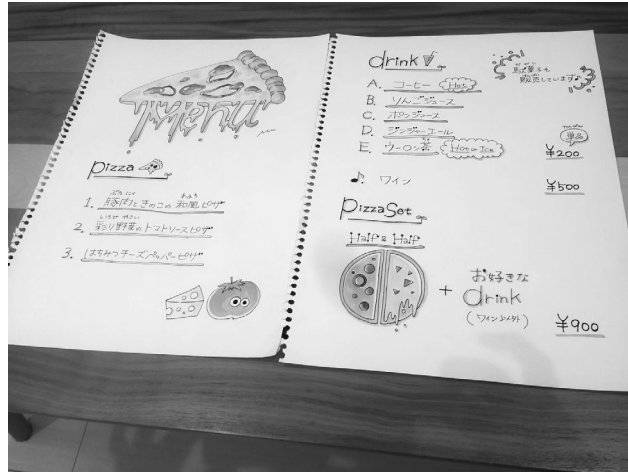 pizza
ぶたにく わふう
1. 豚肉ときのこの和風ピザ
いろどり やさい
2. 彩り野菜のトマトソースピザ
3. はちみつチーズペッパーピザ
drink
駄菓子も
販売しています
A. コーヒー Hot
B. りんごジュース
C. ポンジュース
D. ジンジャーエール
E. ウーロン茶 Hot or Ice
単品
¥200
ワイン ¥500
Pizza Set
Half & Half
+ お好きな
drink
(ワイン以外)
¥900